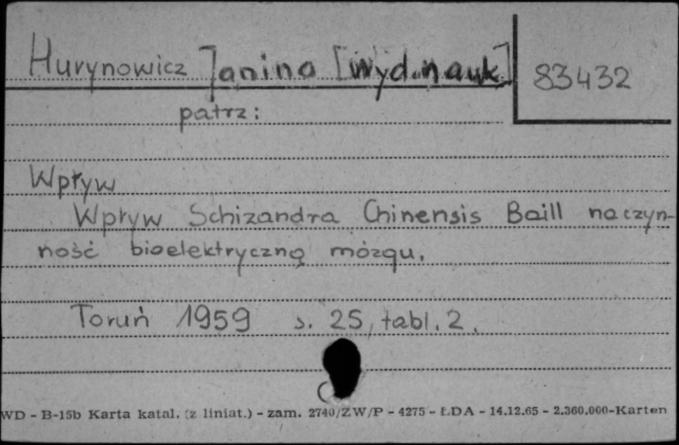 Hurynowicz Janina [Wyd.nauk]
83432
patrz:
Wpływ
Wpływ Schizandra Chinensis Baill na czyn-
ność bioelektryczną mózgu.
Toruń 1959 s. 25, tabl. 2.
WD - B-15b Karta katal. (z liniat.) - zam. 2740/ZW/P - 4275 - ŁDA - 14.12.65 - 2.360.000-Karten